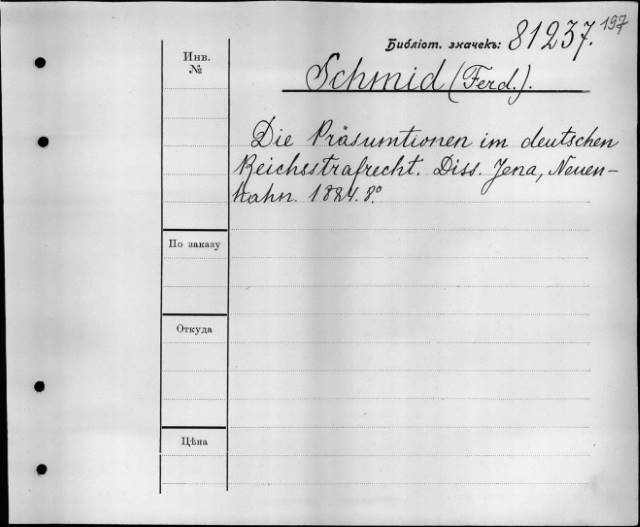 197
Библіот. значекъ: 81237.
Инв.
№
Schmid (Ferd.).
Die Präsumtionen im deutschen
Reichsstrafrecht. Diss. Jena, Neuen-
hahn. 1884. 8°
По заказу
Откуда
Цѣна